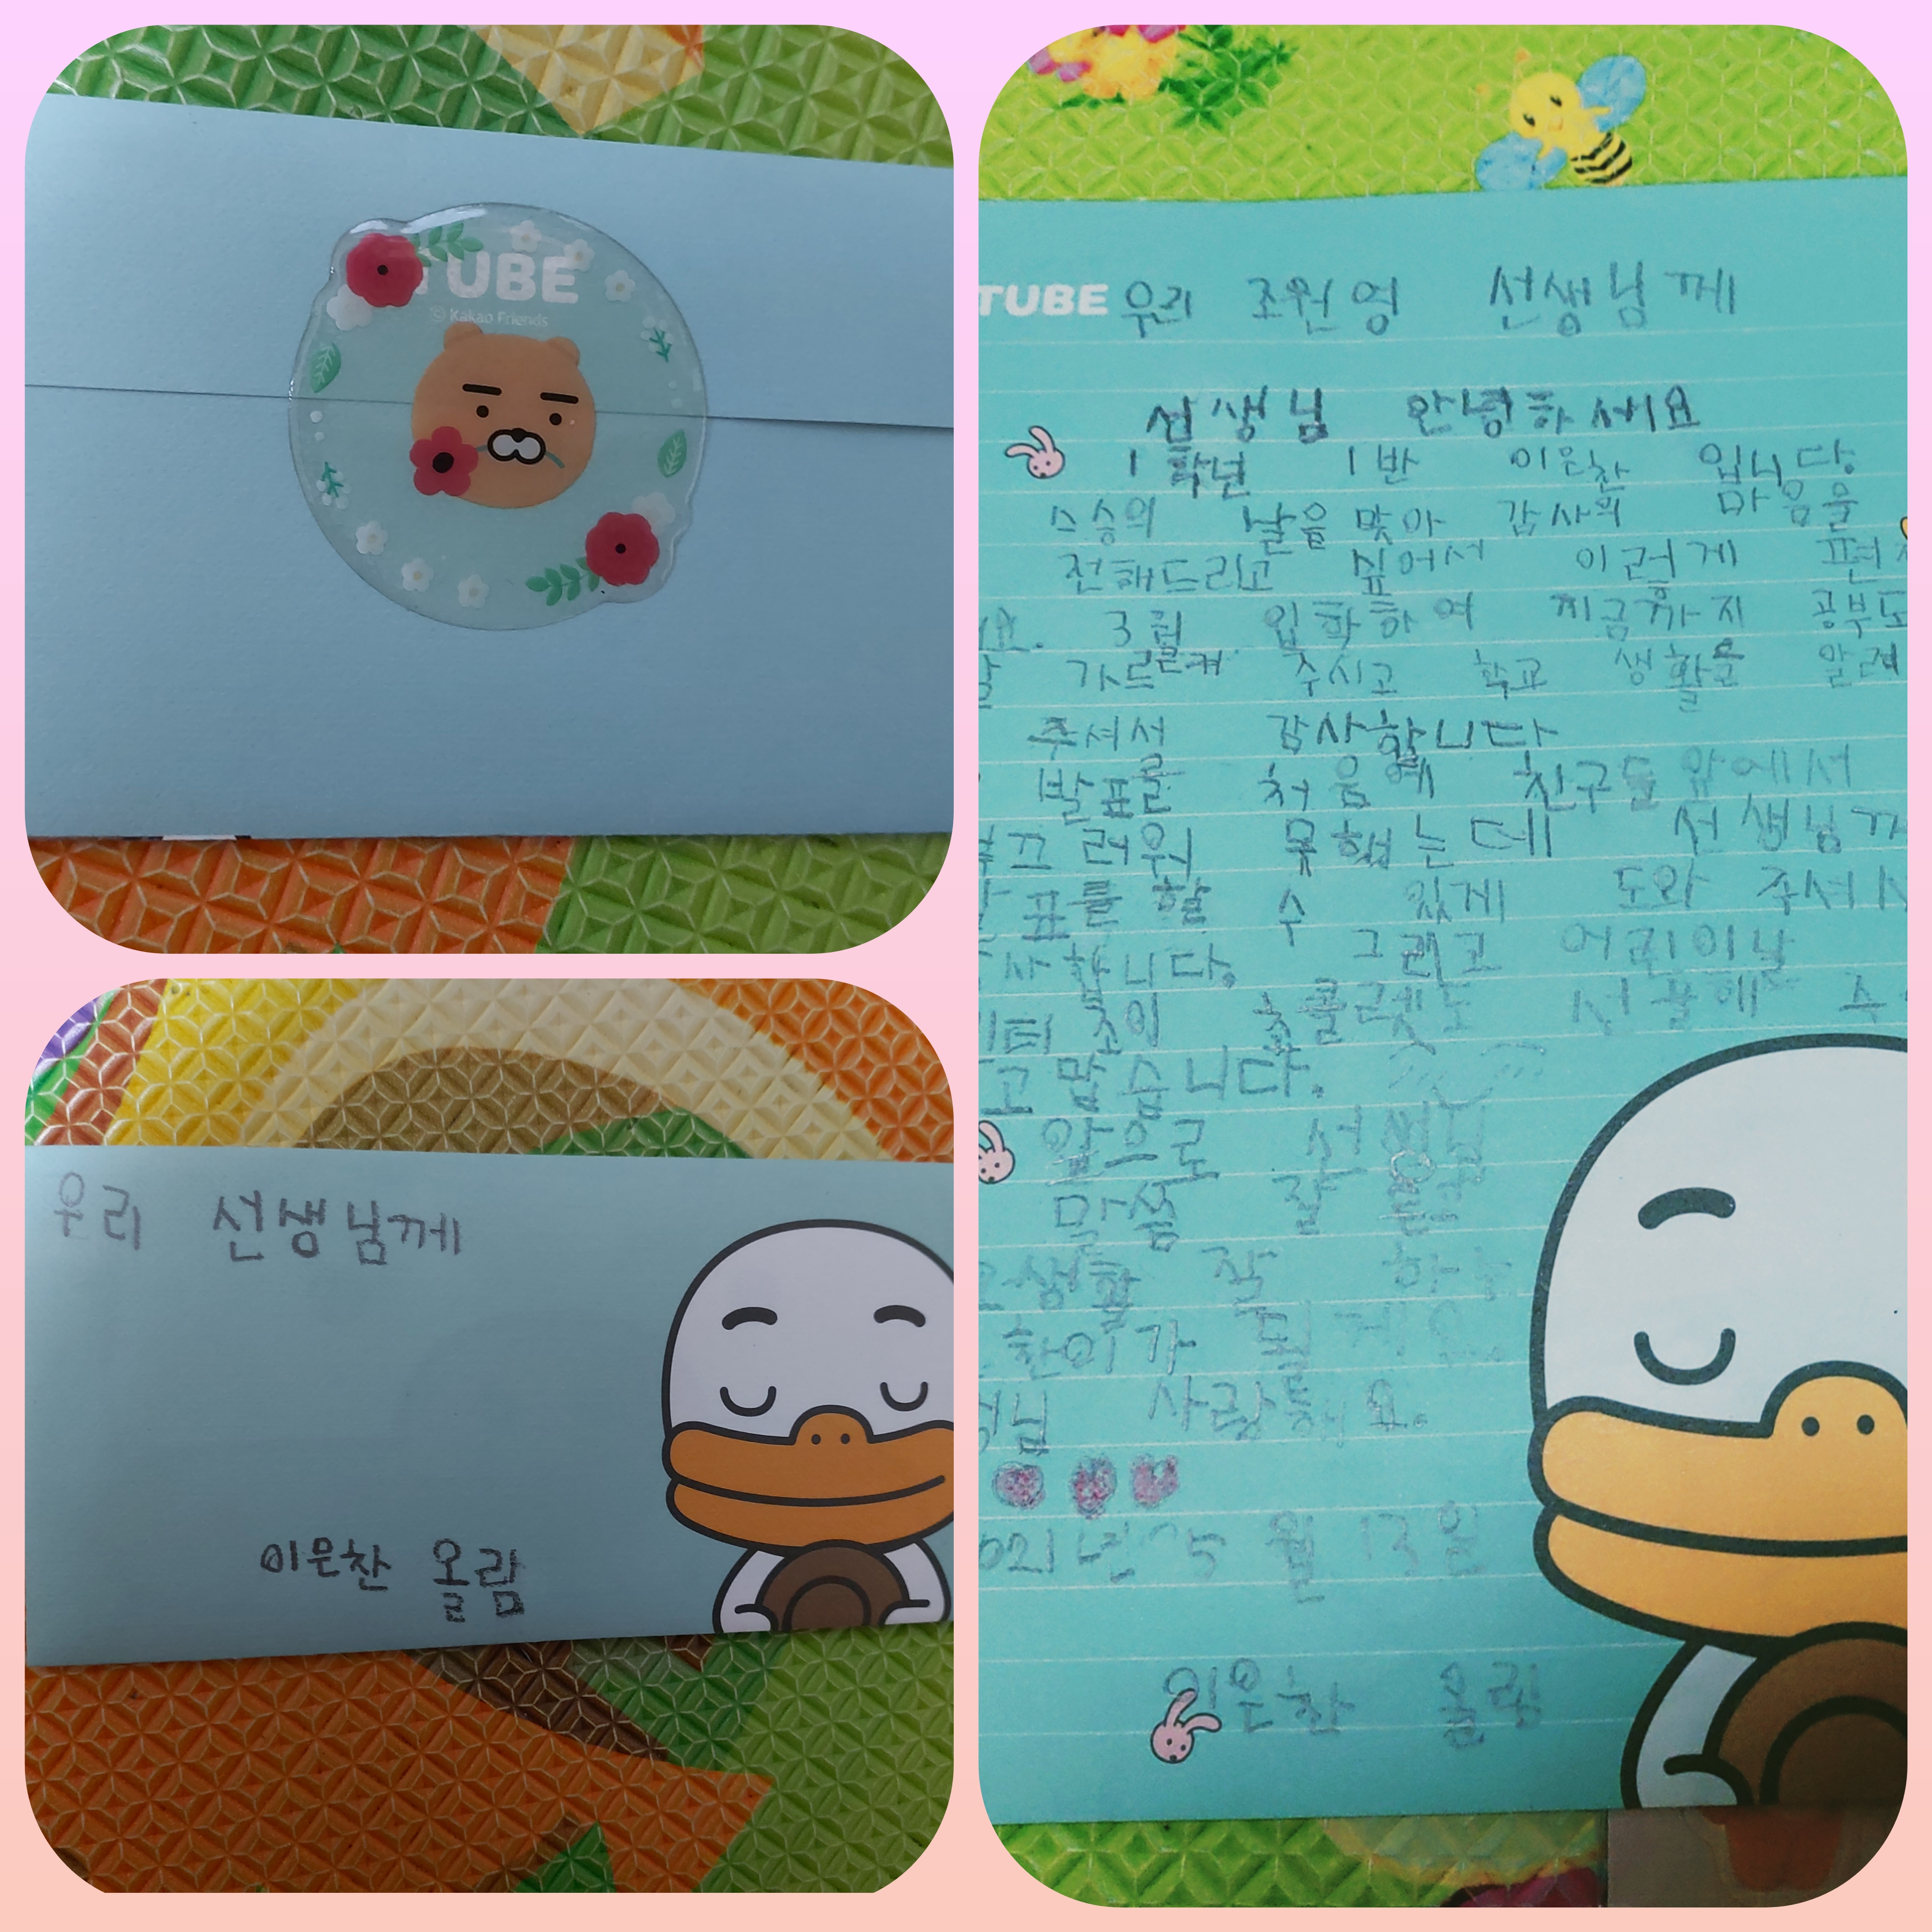 TUBE
© Kakao Friends
우리 선생님께
이은찬 올림
TUBE
우리 조원영 선생님께
선생님 안녕하세요
1학년 1반 이은찬 입니다
스승의 날을 맞아 감사의 마음을
전해드리고 싶어서 이렇게
요. 3월 입학하여 지금까지 공부도
가르켜 주시고 학교 생활을 알려
주셔서 감사합니다
발표를 처음에 친구들 앞에서
끄러워 못했는데 선생님께
표를 할 수 있게 도와 주셔서
사합니다. 그리고 어린이날
고맙습니다.
앞으로 선생님
말씀 잘
생활 잘 하는
찬이가 될게요
님 사랑해요.
021년 5월 13일
이은찬 올림